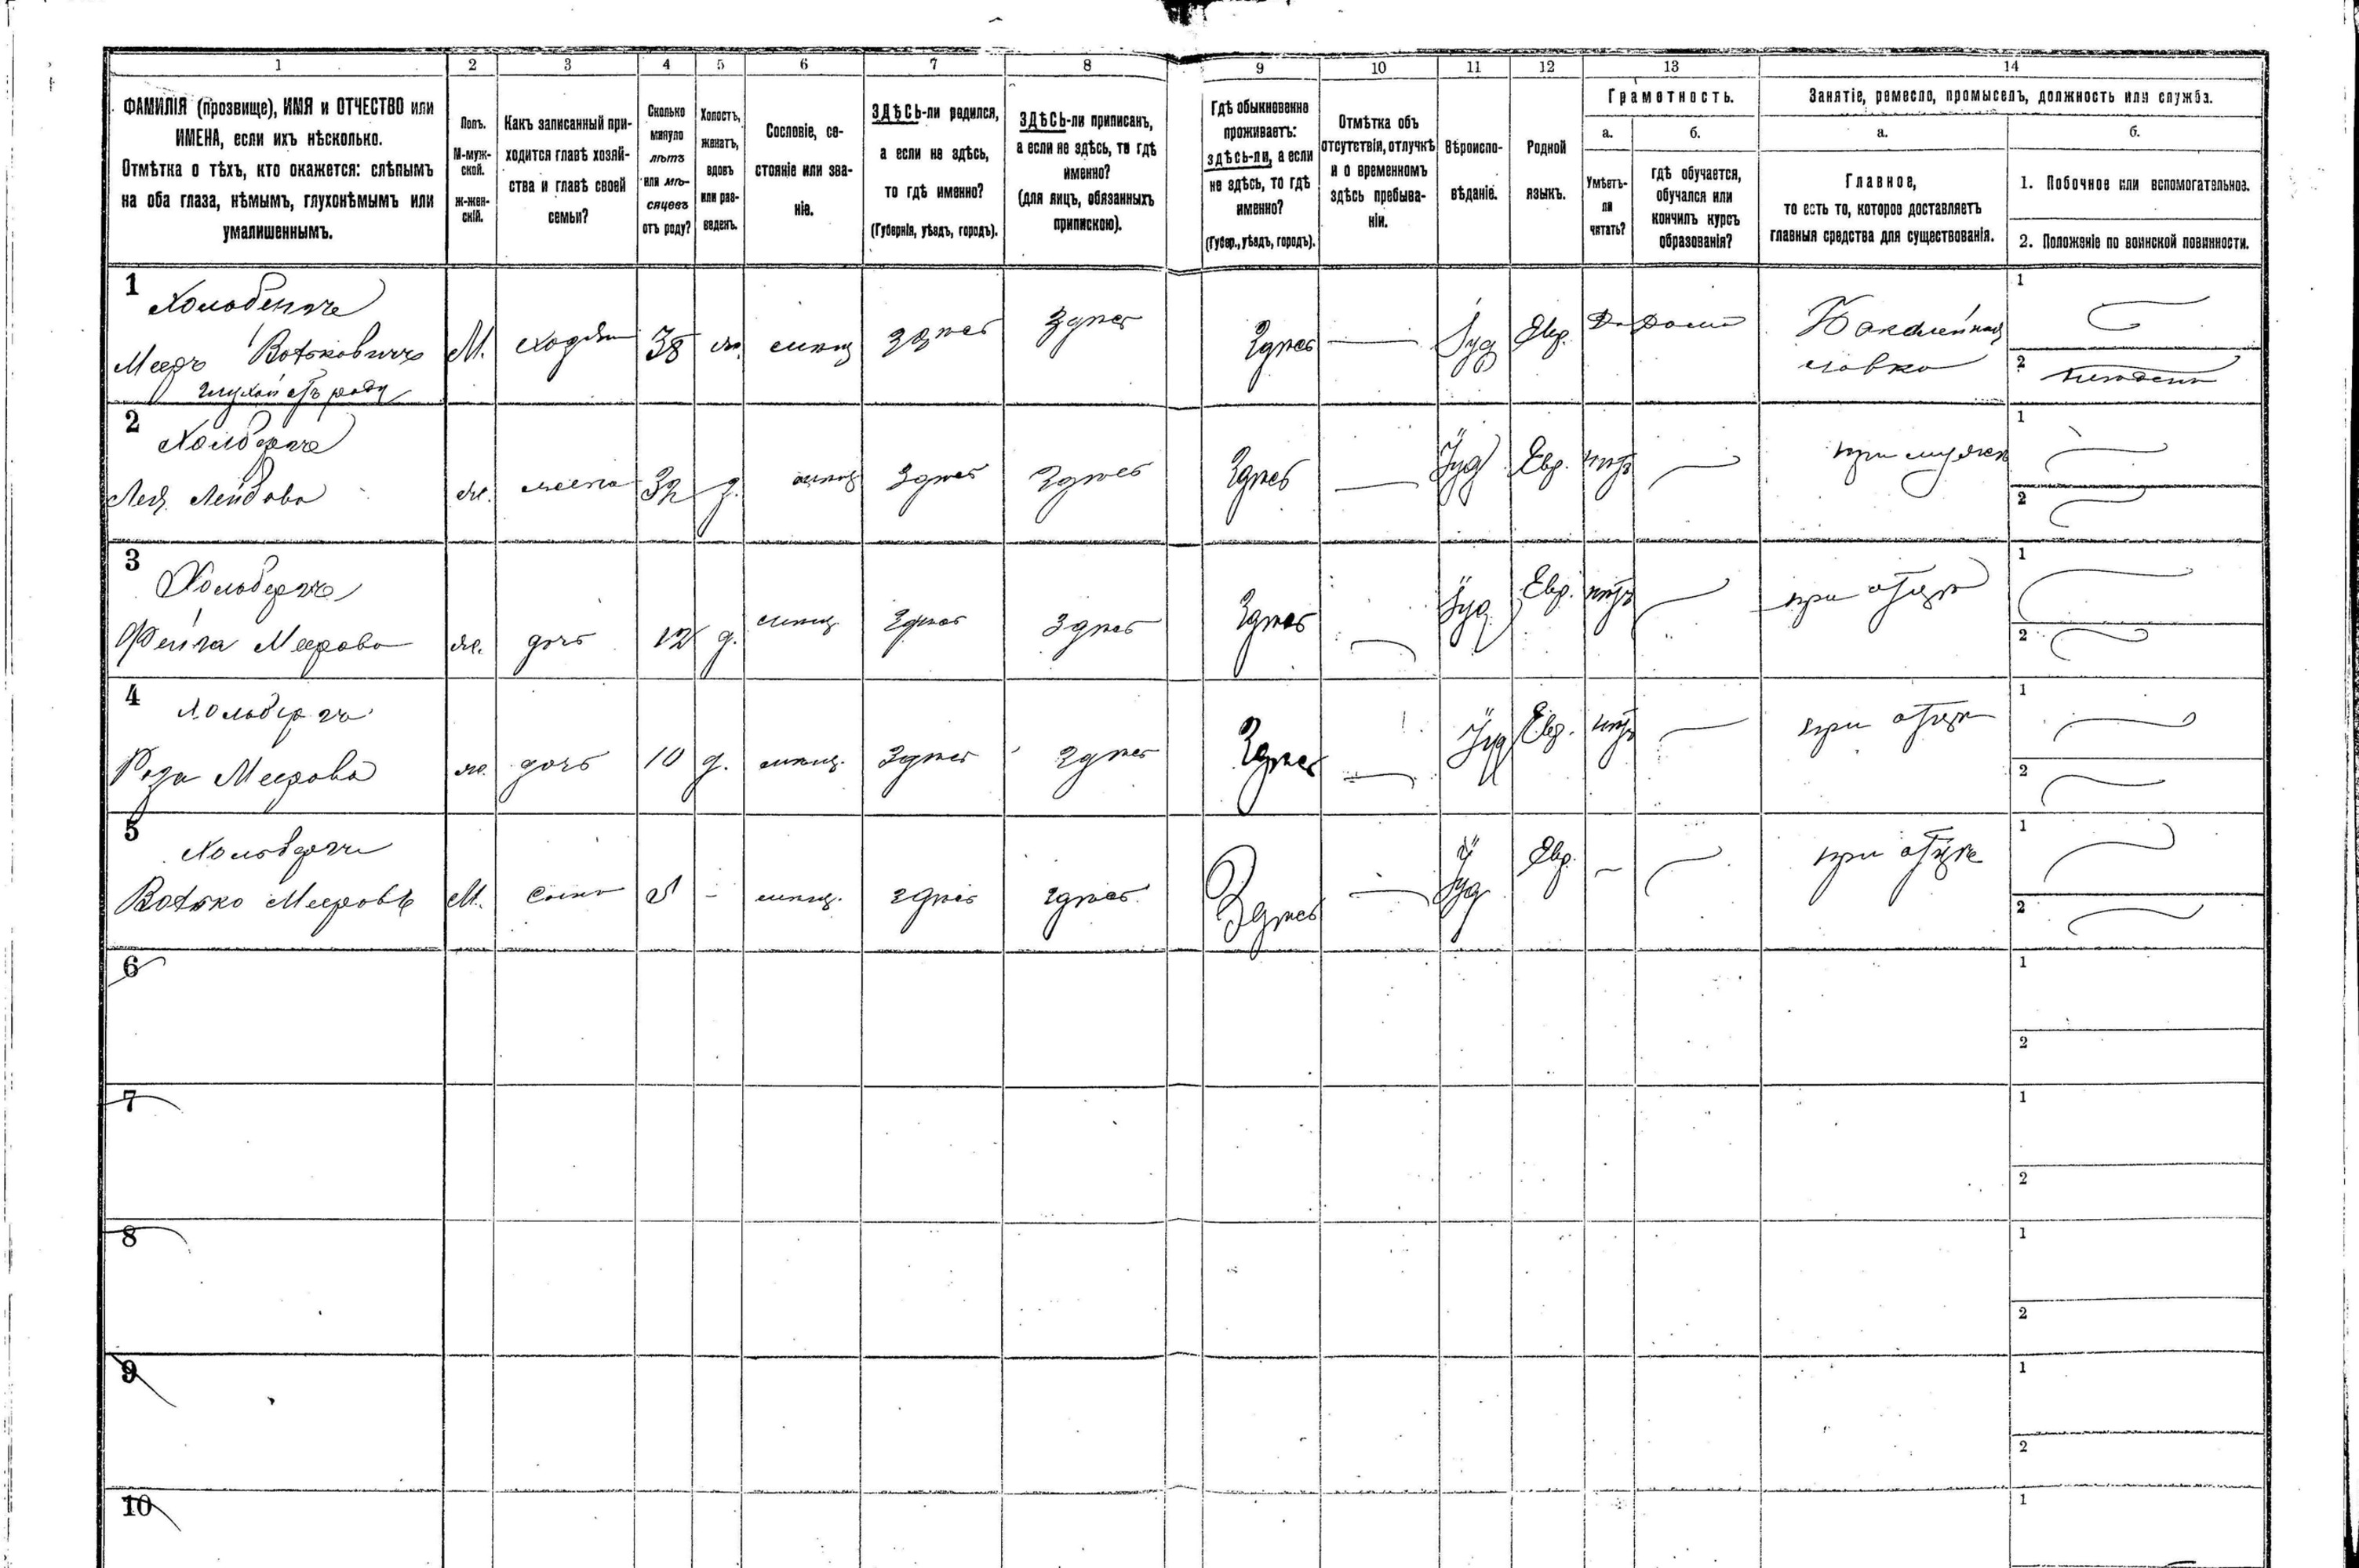 1 2 3 4 5 6 7 8 9 10 11 12 13 14
ФАМИЛІЯ (прозвище), ИМЯ и ОТЧЕСТВО или
ИМЕНА, если ихъ нѣсколько.
Отмѣтка о тѣхъ, кто окажется: слѣпымъ
на оба глаза, нѣмымъ, глухонѣмымъ или
умалишеннымъ.
Полъ.
М-муж-
ской.
Ж-жен-
скій.
Какъ записанный при-
ходится главѣ хозяй-
ства и главѣ своей
семьи?
Сколько
минуло
лѣтъ
или мѣ-
сяцевъ
отъ роду?
Холостъ,
женатъ,
вдовъ
или раз-
веденъ.
Сословіе, со-
стояніе или зва-
ніе.
ЗДѢСЬ-ли родился,
а если не здѣсь,
то гдѣ именно?
(Губернія, уѣздъ, городъ).
ЗДѢСЬ-ли приписанъ,
а если не здѣсь, то гдѣ
именно?
(для лицъ, обязанныхъ
припискою).
Гдѣ обыкновенно
проживаетъ:
здѣсь-ли, а если
не здѣсь, то гдѣ
именно?
(Губер., уѣздъ, городъ).
Отмѣтка объ
отсутствіи, отлучкѣ
и о временномъ
здѣсь пребыва-
ніи.
Вѣроиспо-
вѣданіе.
Родной
языкъ.
Грамотность.
а.
Умѣетъ-
ли
читать?
б.
гдѣ обучается,
обучался или
кончилъ курсъ
образованія?
Занятіе, ремесло, промыселъ, должность или служба.
а.
Главное,
то есть то, которое доставляетъ
главныя средства для существованія.
б.
1. Побочное или вспомогательное.
2. Положеніе по воинской повинности.
1
Мееръ
глухой отъ роду
М. 38 здѣсь здѣсь Здѣсь — Іуд Евр. Да Дома Бакалейная
лавка
1
2
2
Хольбергъ
Лея Лейбова ж. жена 32 з. мѣщ здѣсь здѣсь Здѣсь — Іуд Евр. нѣтъ — при мужѣ
1
2
3
Хольбергъ
Фейга Меерова ж. дочь 12 д. мѣщ здѣсь здѣсь Здѣсь — Іуд Евр. нѣтъ — при отцѣ
1
2
4
Хольбергъ
Роза Меерова ж. дочь 10 д. мѣщ. здѣсь здѣсь Здѣсь — Іуд Евр. нѣтъ — при отцѣ
1
2
5
Хольбергъ
Мееровъ М. сынъ - мѣщ. здѣсь здѣсь Здѣсь — Іуд Евр. — — при отцѣ
1
2
6
1
2
7
1
2
8
1
2
9
1
2
10
1